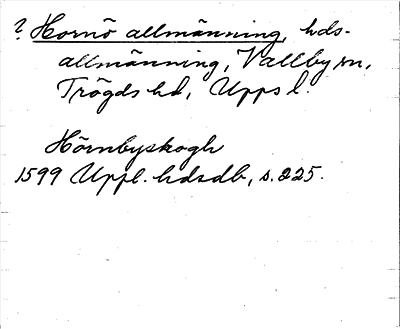 ? Hornö allmänning, hds-
allmänning, Vallby sn,
Trögds hd, Upps l.
Hörnbyskogh
1599 Uppl. hdsdb, s. 225.